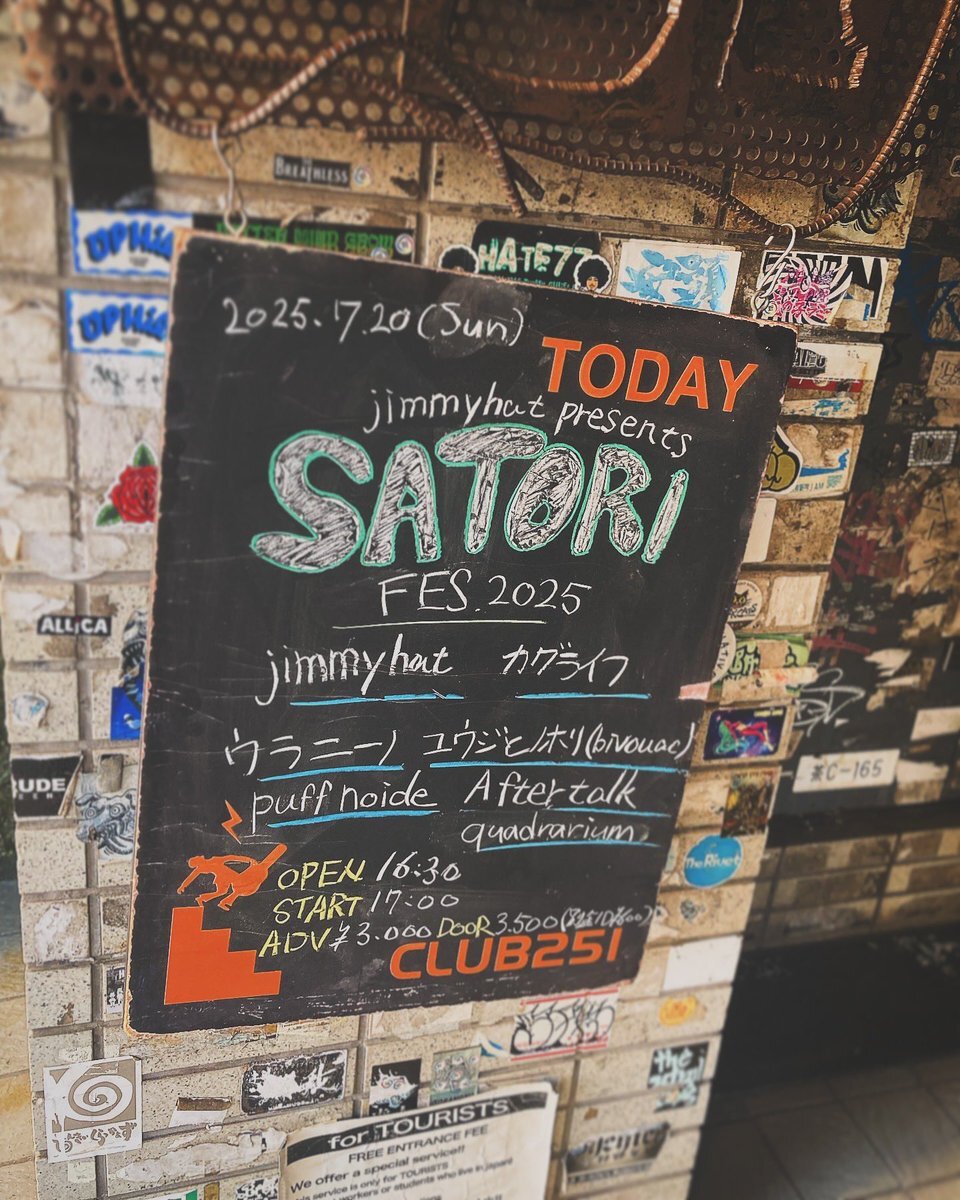 BREATHLESS
HATE77
2025.7.20(Sun)
TODAY
jimmyhat presents
SATORI
FES.2025
jimmyhat カグライフ
ウラニーノ ユウジとノホリ(bivouac)
puff noide Aftertalk
quadrarium
OPEN 16:30
START 17:00
ADV ¥3.000 DOOR 3.500
CLUB251
ALLICA
RUDE
茶C-165
The Rivet
for TOURISTS
FREE ENTRANCE FEE
We offer a special service!!
service is only for TOURISTS
workers or students who live in japan